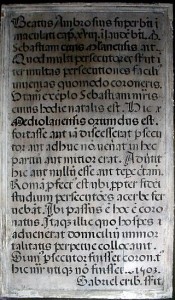 Beatus Ambrosius super bti i
maculati cap. xviii. il aucē bti.
Sebastiani civis Mlanensis ait.
Quod multi persecutores st ut i
ter multas persecutiones facili
invenias quomodo coroneris.
Utam exeplo Sebastiani mris
cuius hodie natalis est. Hic
Mediolanensis oriundus est.
fortasse aut iā discesserat psecu
tor aut adhuc nō venat in hec
partiū aut mitior erat. Advtit
hic aut nullū esse aut tepe etam.
Romā pfect est ubi ppter fidei
studium persecutões acerbe fer
vebāt. Ibi passus ē hoc ē coro
natus. Itaq illuc quo hospes
advenerat domiciliū immor
talitatis perpetue collocavit.
Si un psecutor fuisset coron
hic mr utiq nō fuisset. 1503.
Gabriel erib. ffit